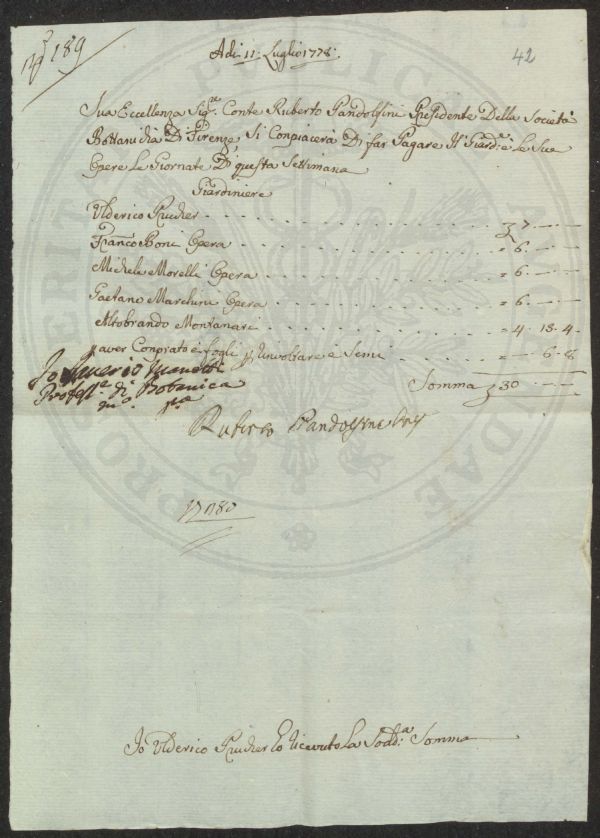 N.° 189
Adi 11: Luglio 1778:
42
Sua Eccellenza Sig.re Conte Ruberto Pandolfini Presidente Della Società
Bottanichia Di Firenze, Si Conpiacerà Di far Pagare Il Giard.re e le Sue
Opere Le Giornate Di questa Settimana
Giardiniere
Ulderico Prucher 7
Franco Boni Opera = 6
Michele Morelli Opera = 6
Gaetano Marchini Opera = 6
Altobrando Montanari = 4 . 13 . 4
p aver Conprato è fogli p Involtare e Semi 6 . 8
Io Saverio Manetti
Profess.e di Botanica
m.o p.a
Somma 30
Ruberto Pandolfini
Io Ulderico Prucher ho ricevuto La Sodd.a Somma
PUBLICAE